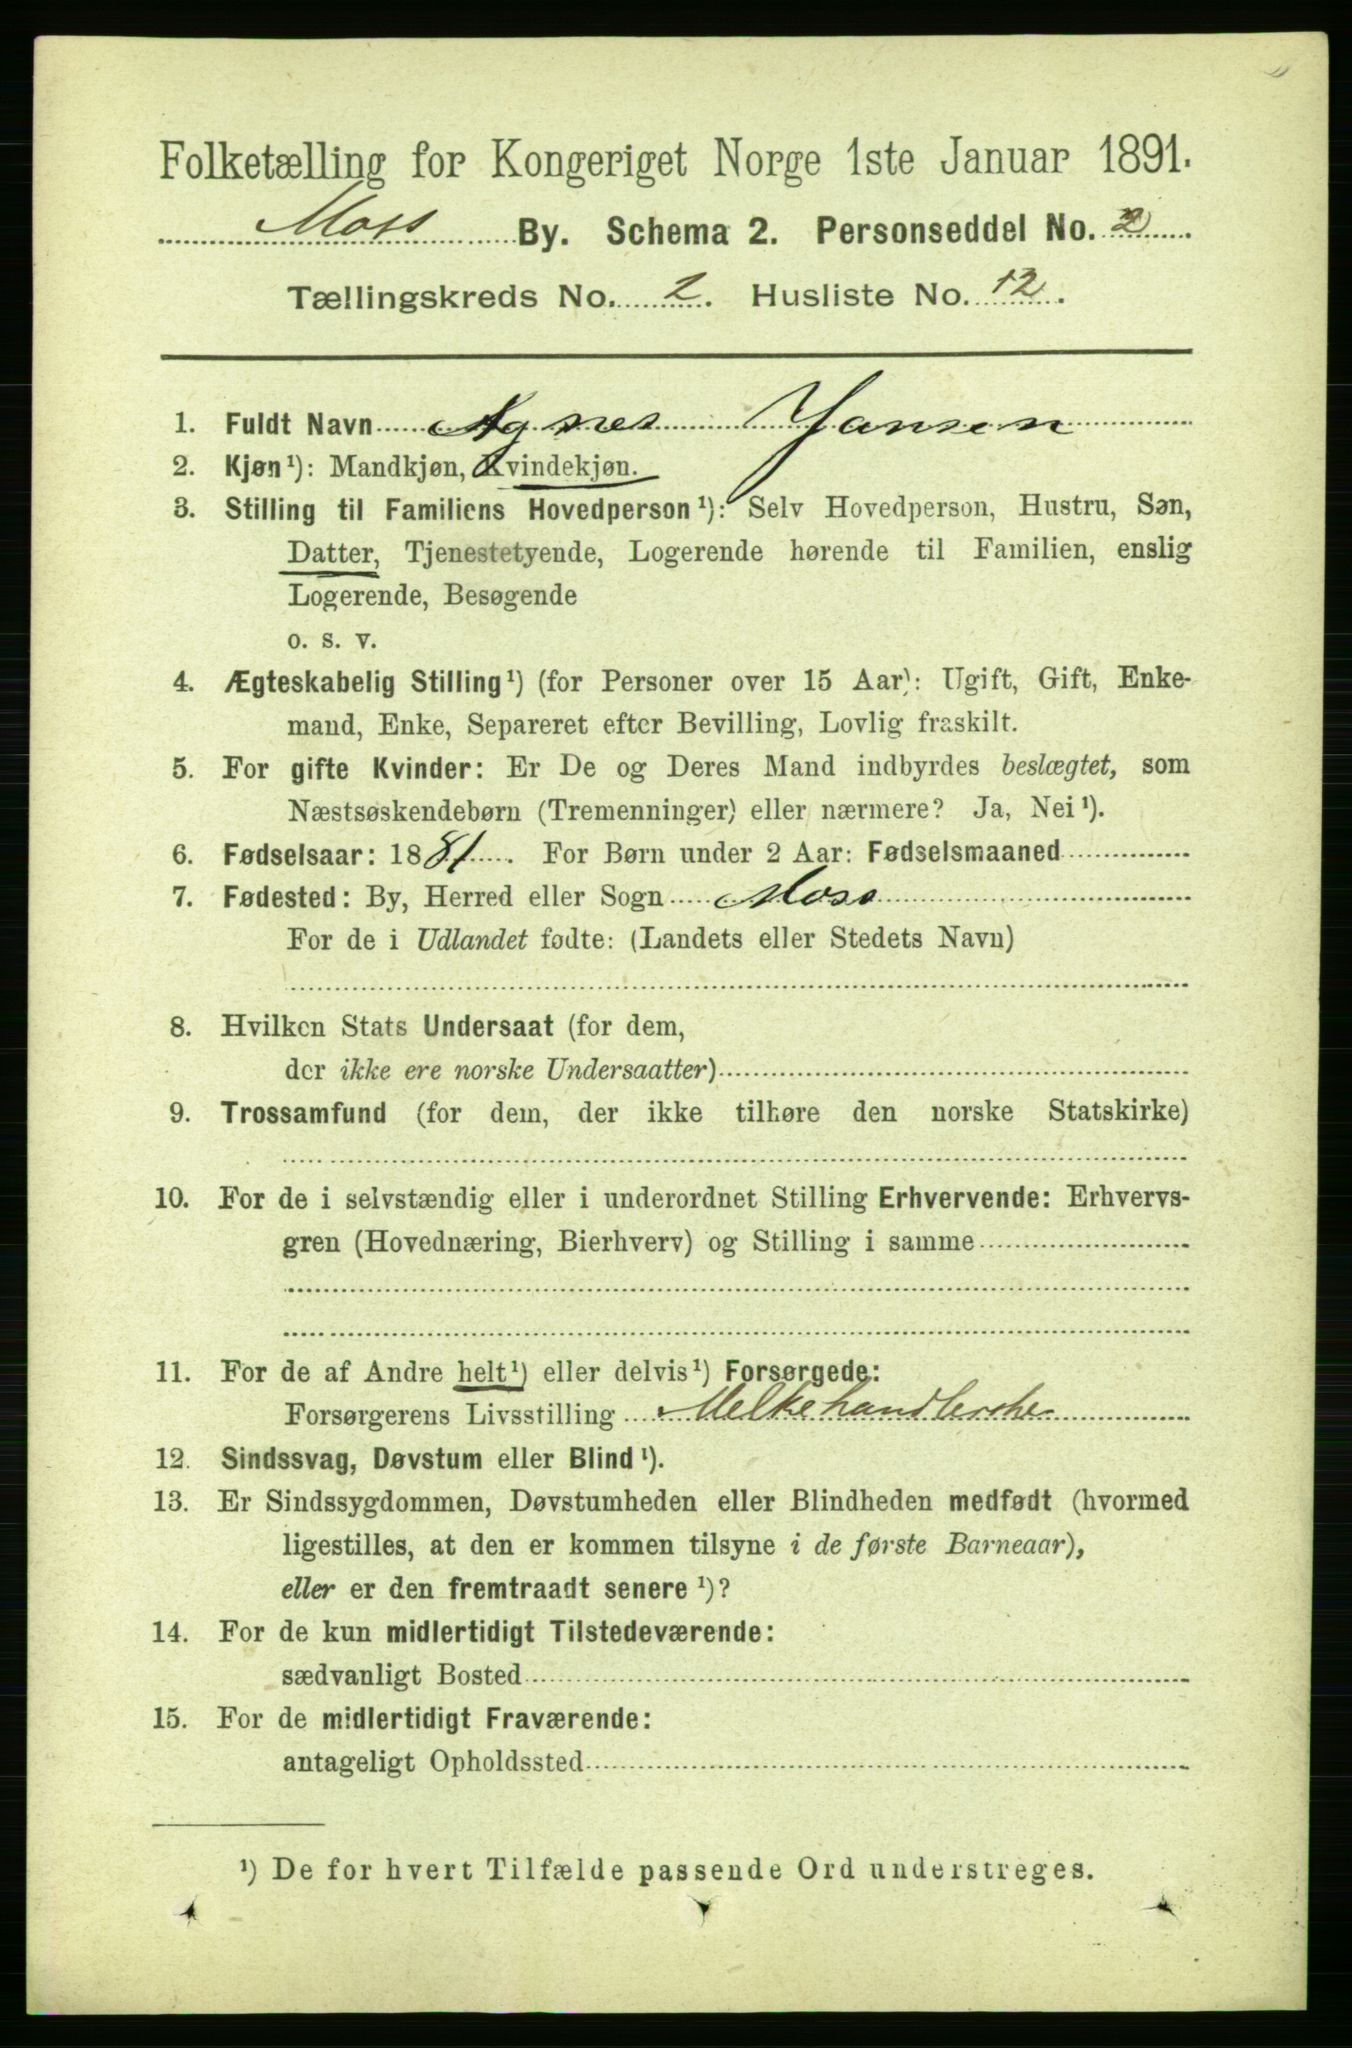 Folketælling for Kongeriget Norge 1ste Januar 1891.
Moss By. Schema 2. Personseddel No. 2
Tællingskreds No. 2. Husliste No. 12.
1. Fuldt Navn Agnes Jansen
2. Kjøn¹): Mandkjøn, Kvindekjøn.
3. Stilling til Familiens Hovedperson¹): Selv Hovedperson, Hustru, Søn,
Datter, Tjenestetyende, Logerende hørende til Familien, enslig
Logerende, Besøgende
o. s. v.
4. Ægteskabelig Stilling¹) (for Personer over 15 Aar): Ugift, Gift, Enke-
mand, Enke, Separeret efter Bevilling, Lovlig fraskilt.
5. For gifte Kvinder: Er De og Deres Mand indbyrdes beslægtet, som
Næstsøskendebørn (Tremenninger) eller nærmere? Ja, Nei¹).
6. Fødselsaar: 1881. For Børn under 2 Aar: Fødselsmaaned
7. Fødested: By, Herred eller Sogn Moss
For de i Udlandet fødte: (Landets eller Stedets Navn)
8. Hvilken Stats Undersaat (for dem,
der ikke ere norske Undersaatter)
9. Trossamfund (for dem, der ikke tilhøre den norske Statskirke)
10. For de i selvstændig eller i underordnet Stilling Erhvervende: Erhvervs-
gren (Hovednæring, Bierhverv) og Stilling i samme
11. For de af Andre helt¹) eller delvis¹) Forsørgede:
Forsørgerens Livsstilling Melkehandlerske
12. Sindssvag, Døvstum eller Blind¹).
13. Er Sindssygdommen, Døvstumheden eller Blindheden medfødt (hvormed
ligestilles, at den er kommen tilsyne i de første Barneaar),
eller er den fremtraadt senere¹)?
14. For de kun midlertidigt Tilstedeværende:
sædvanligt Bosted
15. For de midlertidigt Fraværende:
antageligt Opholdssted
¹) De for hvert Tilfælde passende Ord understreges.